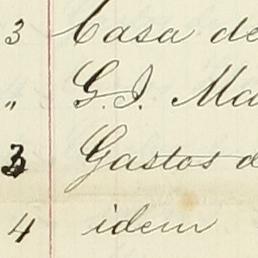 3 Casa de
" G. J. Ma
3 Gastos d
4 idem